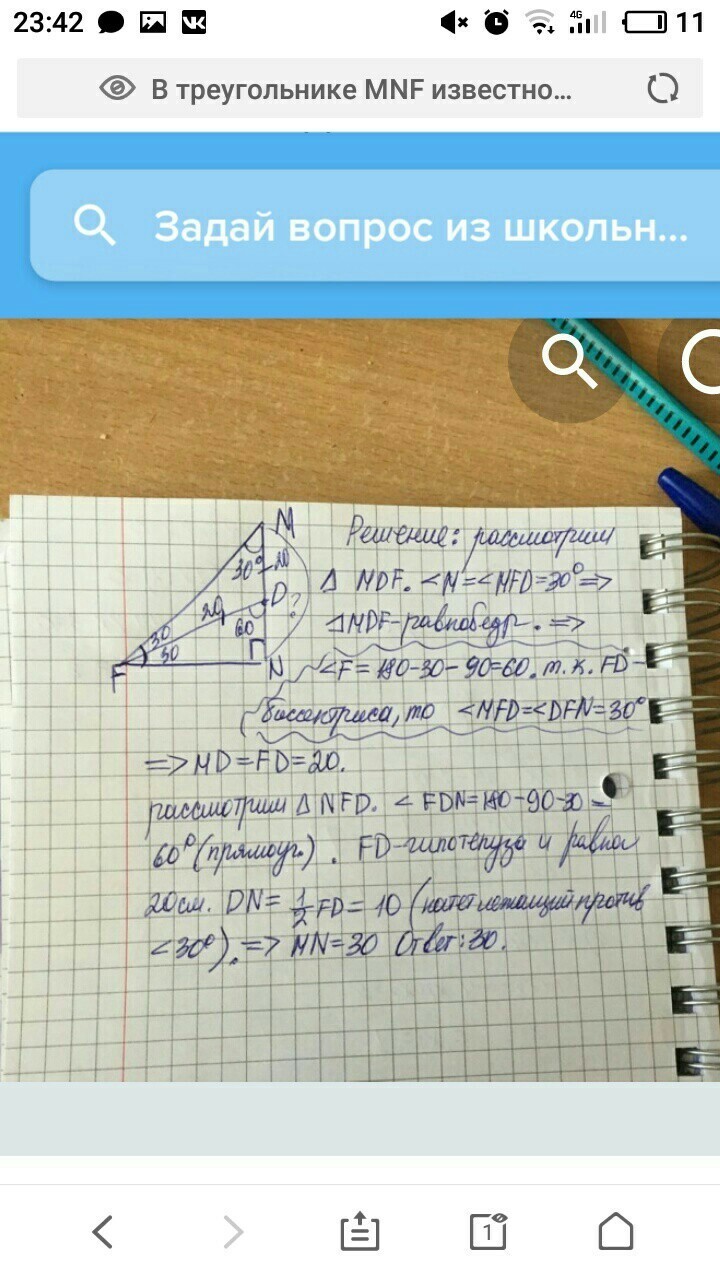 23:42
4G
11
В треугольнике MNF известно...
Задай вопрос из школьн...
M
30°
20
D
?
20
60
30
30
F
N
Решение: рассмотрим
Δ MDF. <M=<MFD=30°=>
ΔMDF-равнобедр. =>
<F=180-30-90=60. т.к. FD-
биссектриса, то <MFD=<DFN=30°
=> MD=FD=20.
рассмотрим Δ NFD. < FDN=180-90-30=
60° (прямоуг.). FD-гипотенуза и равна
20см. DN= 1/2 FD = 10 (катет лежащий против
<30°). => MN=30 Ответ: 30.
1